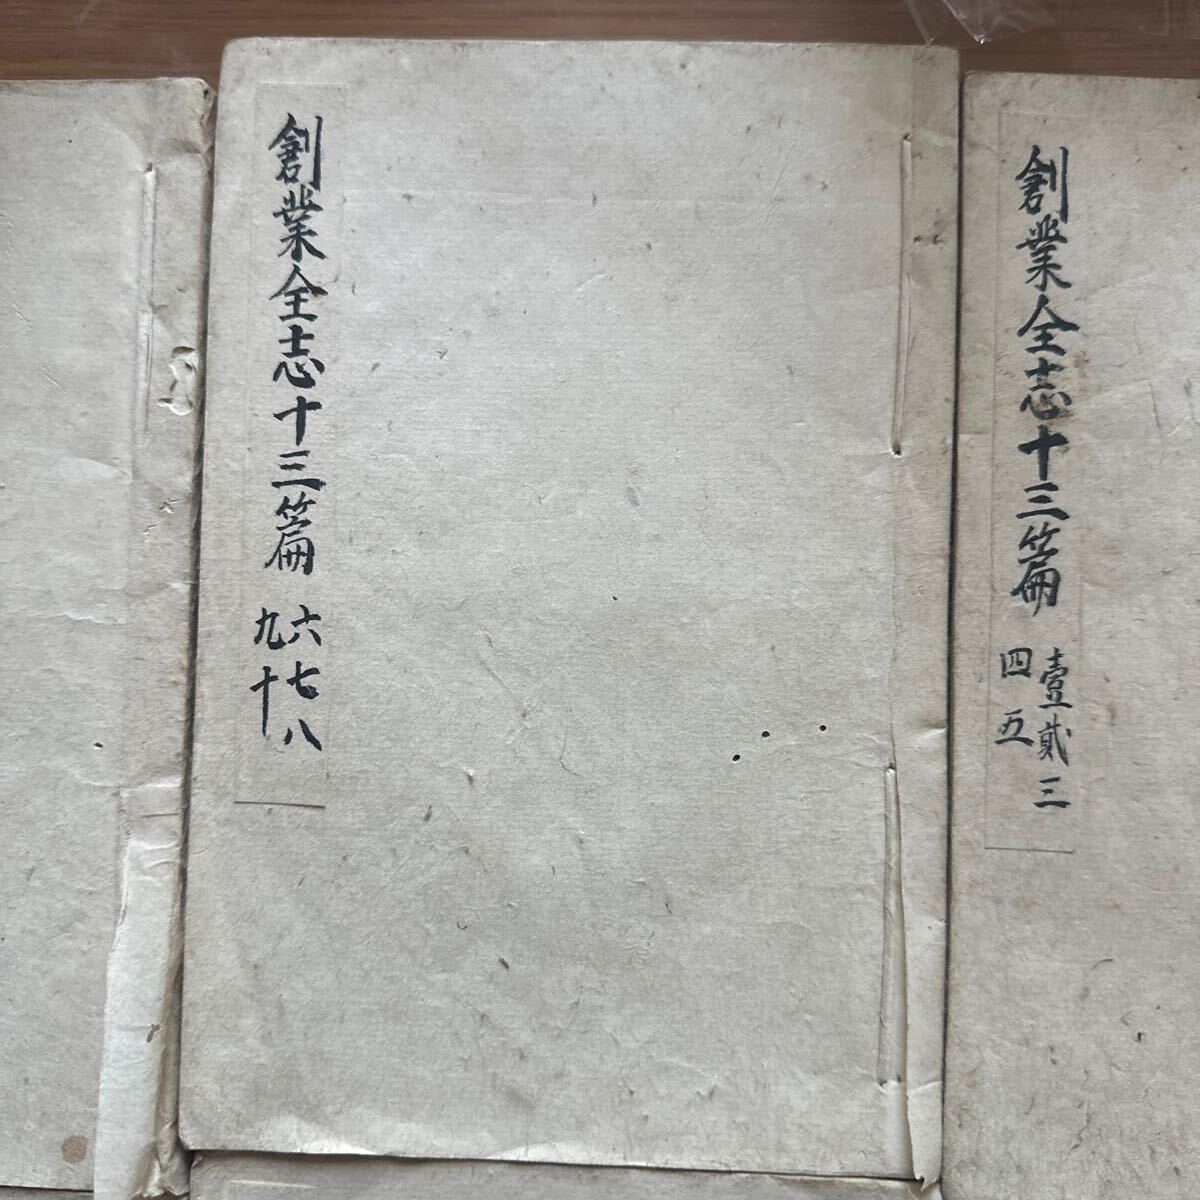 創業全志十三篇
壹貳三
四五
創業全志十三篇
六七八
九十